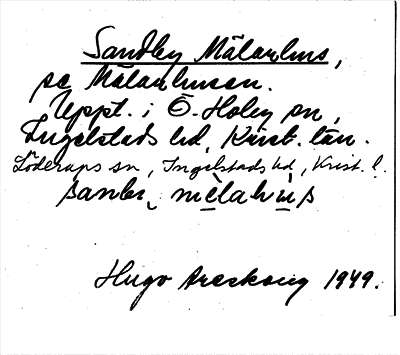 Sandby Mälarhus,
se Mälarhusen.
Uppt. i Ö. Hoby sn,
Ingelstads hd, Krist. län.
Löderups sn, Ingelstads hd, Krist. l.
Hugo Areskoug 1949.